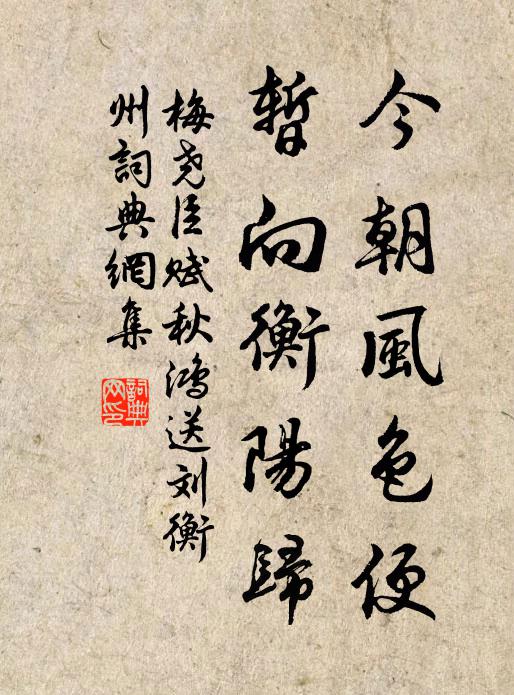 今朝風色便
暫向衡陽歸
梅尧臣赋秋鸿送刘衡
州詞典網集
詞典
网印